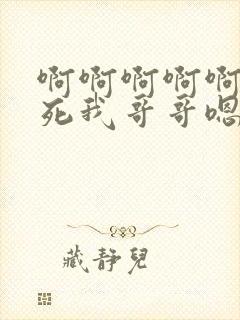 啊啊啊啊啊
死我哥哥嗯
藏静兒